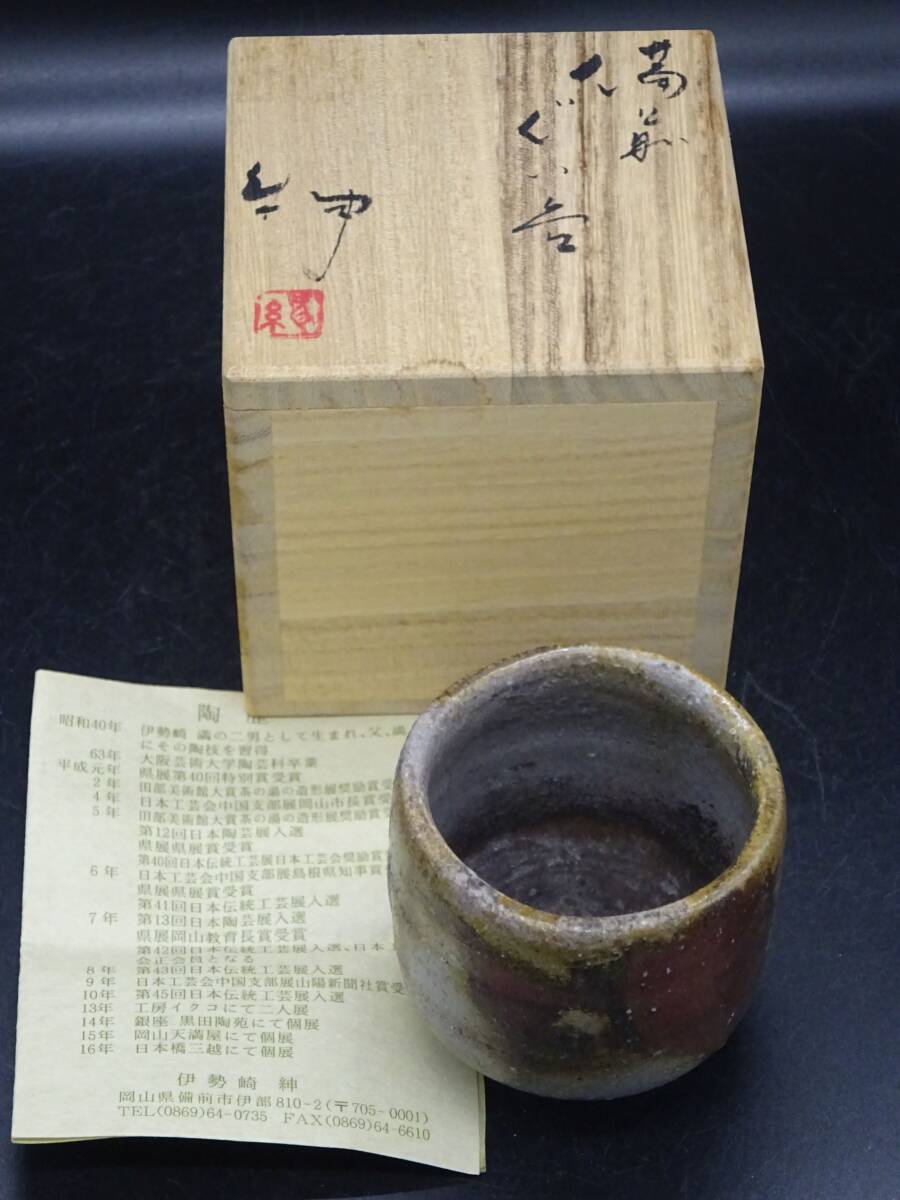 備前
大ぐい呑
紳
陶歴
昭和40年 伊勢崎 満の二男として生まれ、父、満
にその陶技を習得
63年 大阪芸術大学陶芸科卒業
平成元年 県展第40回特別賞受賞
2年 田部美術館大賞茶の湯の造形展奨励賞受
4年 日本工芸会中国支部展岡山市長賞受
5年 田部美術館大賞茶の湯の造形展奨励賞受
第12回日本陶芸展入選
県展県展賞受賞
第40回日本伝統工芸展日本工芸会奨励賞
6年 日本工芸会中国支部展島根県知事賞
県展県展賞受賞
第41回日本伝統工芸展入選
7年 第13回日本陶芸展入選
県展岡山教育長賞受賞
第42回日本伝統工芸展入選、日本工
会正会員となる
8年 第43回日本伝統工芸展入選
9年 日本工芸会中国支部展山陽新聞社賞受
10年 第45回日本伝統工芸展入選
13年 工房イクコにて二人展
14年 銀座 黒田陶苑にて個展
15年 岡山天満屋にて個展
16年 日本橋三越にて個展
伊勢崎 紳
岡山県備前市伊部810-2(〒705-0001)
TEL(0869)64-0735 FAX(0869)64-6610